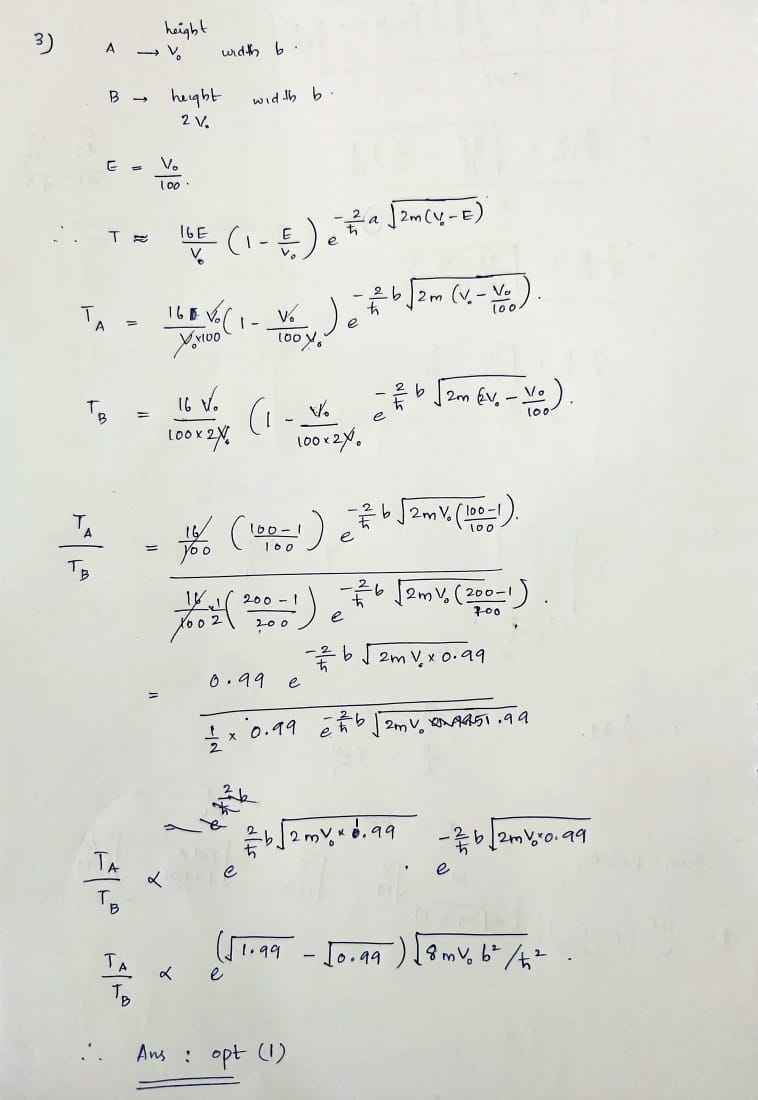 3) A → height V₀ width b.
B → height 2V₀ width b.
E = V₀/100.
∴ T ≈ 16E/V₀ (1 - E/V₀) e^(-2/ħ a √(2m(V₀-E)))
T_A = 16 V₀/(V₀×100) (1 - V₀/(100 V₀)) e^(-2/ħ b √(2m (V₀ - V₀/100))).
T_B = 16 V₀/(100×2V₀) (1 - V₀/(100×2V₀)) e^(-2/ħ b √(2m (2V₀ - V₀/100))).
T_A/T_B = 16/100 ((100-1)/100) e^(-2/ħ b √(2mV₀ ((100-1)/100))).
16/100 × 1/2 ((200-1)/200) e^(-2/ħ b √(2mV₀ ((200-1)/100))).
= 0.99 e^(-2/ħ b √(2mV₀ × 0.99))
1/2 × 0.99 e^(-2/ħ b √(2mV₀ 1.99))
T_A/T_B ∝ e^(2/ħ b √(2mV₀ × 1.99)) . e^(-2/ħ b √(2mV₀×0.99))
T_A/T_B ∝ e^((√1.99 - √0.99) √(8mV₀ b²/ħ²)).
∴ Ans : opt (1)